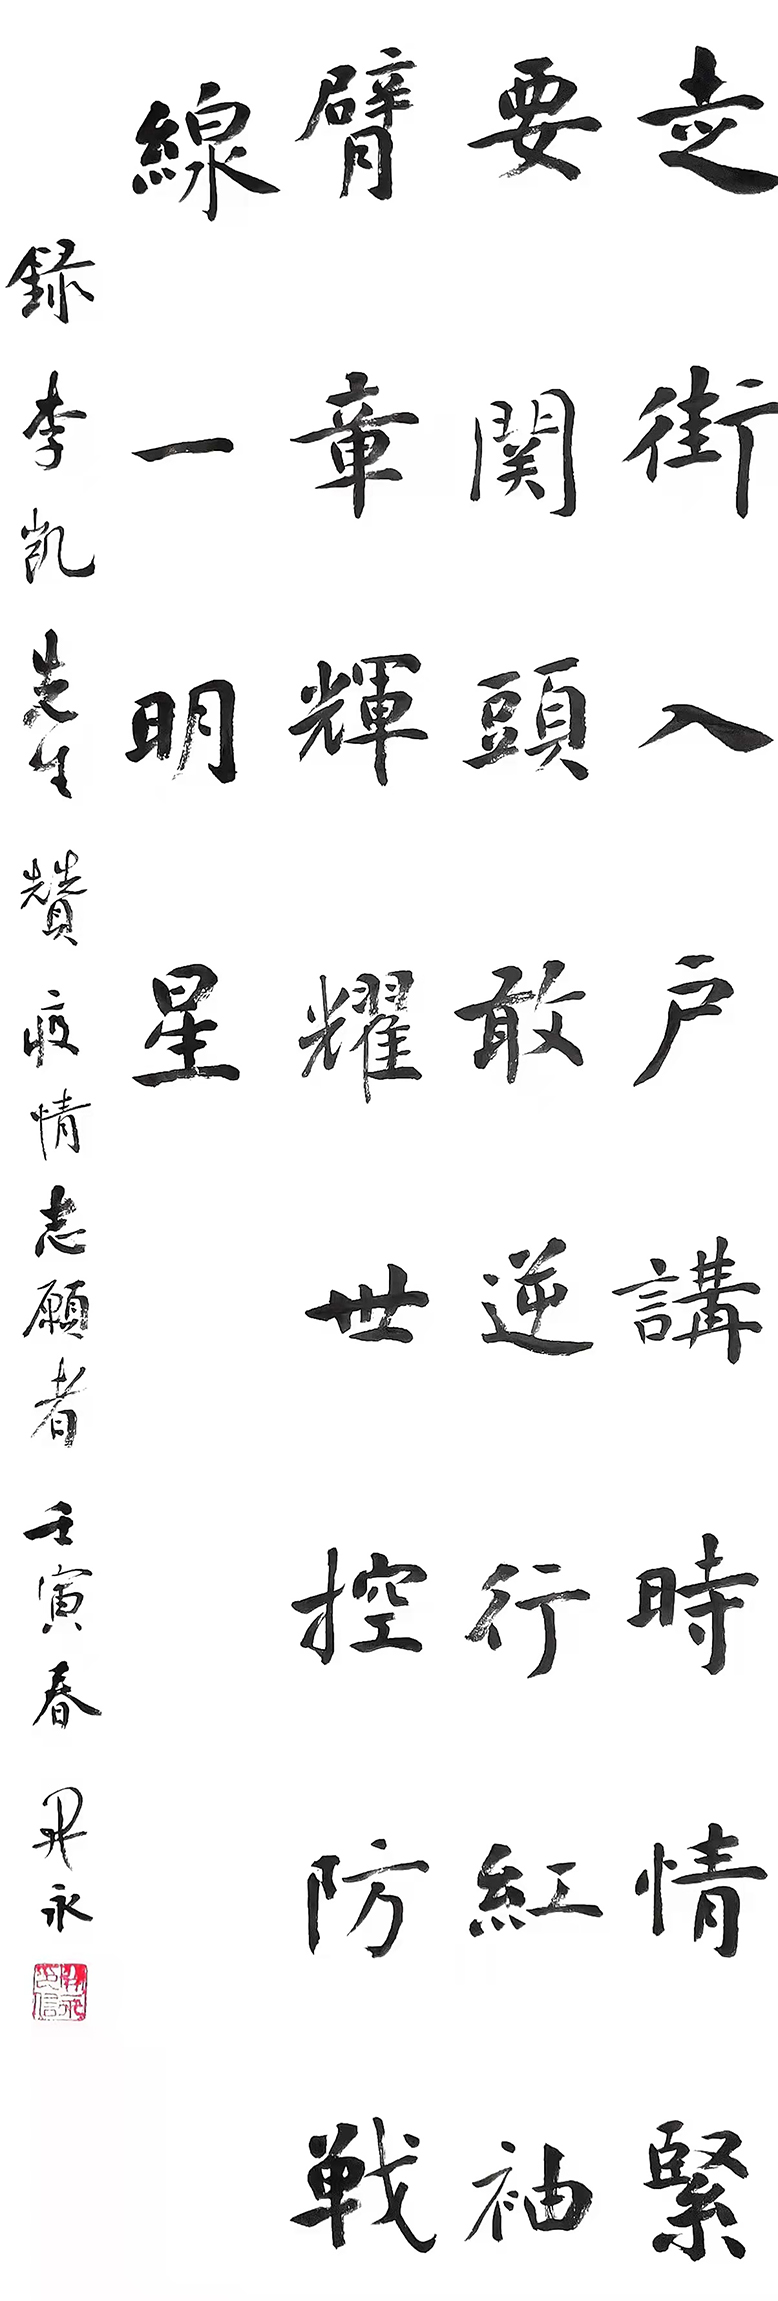 走街入户講時情緊
要関頭敢逆行紅袖
臂章輝耀世控防戦
線一明星
録李凯先生賛疫情志願者壬寅春尹永